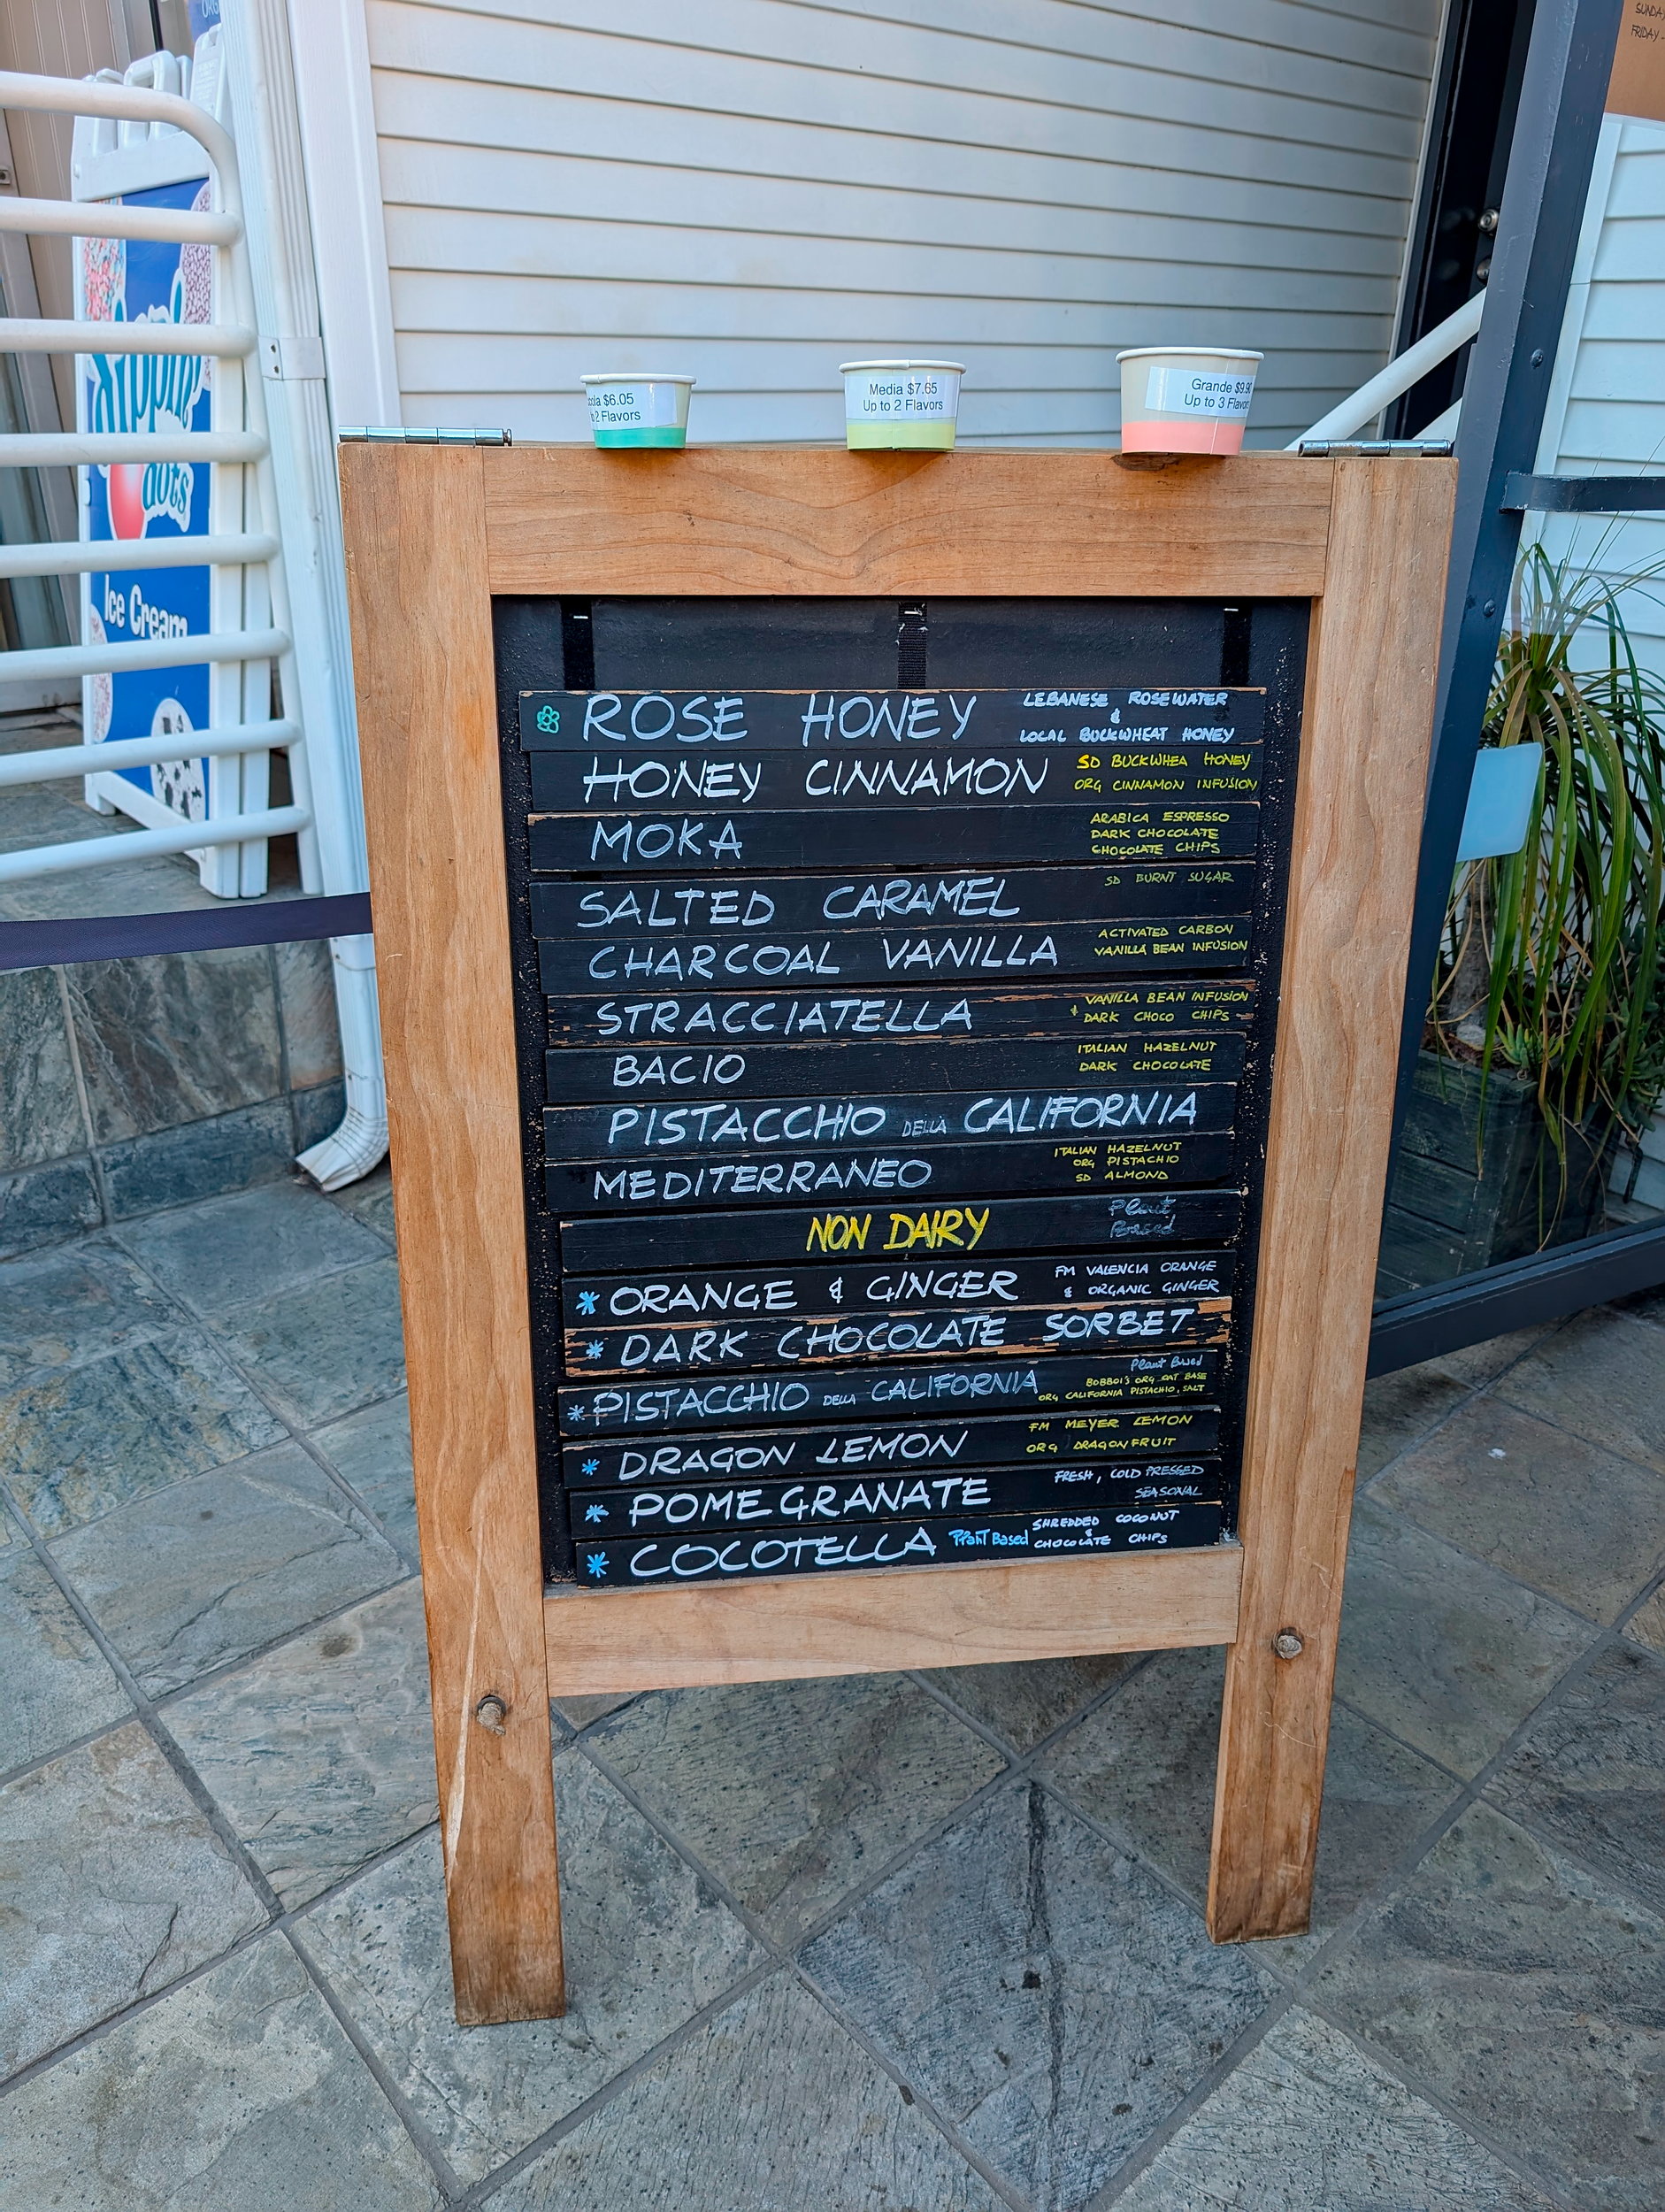 SUNDA
FRIDAY
$6.05
2 Flavors
Media $7.65
Up to 2 Flavors
Grande $9.90
Up to 3 Flavor
dots
Ice Cream
ROSE HONEY LEBANESE ROSEWATER
&
LOCAL BUCKWHEAT HONEY
HONEY CINNAMON SD BUCKWHEA HONEY
ORG CINNAMON INFUSION
MOKA ARABICA ESPRESSO
DARK CHOCOLATE
CHOCOLATE CHIPS
SALTED CARAMEL SD BURNT SUGAR
CHARCOAL VANILLA ACTIVATED CARBON
VANILLA BEAN INFUSION
STRACCIATELLA VANILLA BEAN INFUSION
& DARK CHOCO CHIPS
BACIO ITALIAN HAZELNUT
DARK CHOCOLATE
PISTACCHIO DELLA CALIFORNIA
MEDITERRANEO ITALIAN HAZELNUT
ORG PISTACHIO
SD ALMOND
NON DAIRY Plant
Based
* ORANGE & GINGER FM VALENCIA ORANGE
& ORGANIC GINGER
* DARK CHOCOLATE SORBET
* PISTACCHIO DELLA CALIFORNIA Plant Based
BOBBOI'S ORG OAT BASE
ORG CALIFORNIA PISTACHIO, SALT
* DRAGON LEMON FM MEYER LEMON
ORG DRAGONFRUIT
* POMEGRANATE FRESH, COLD PRESSED
SEASONAL
* COCOTELLA Plant Based SHREDDED COCONUT
&
CHOCOLATE CHIPS